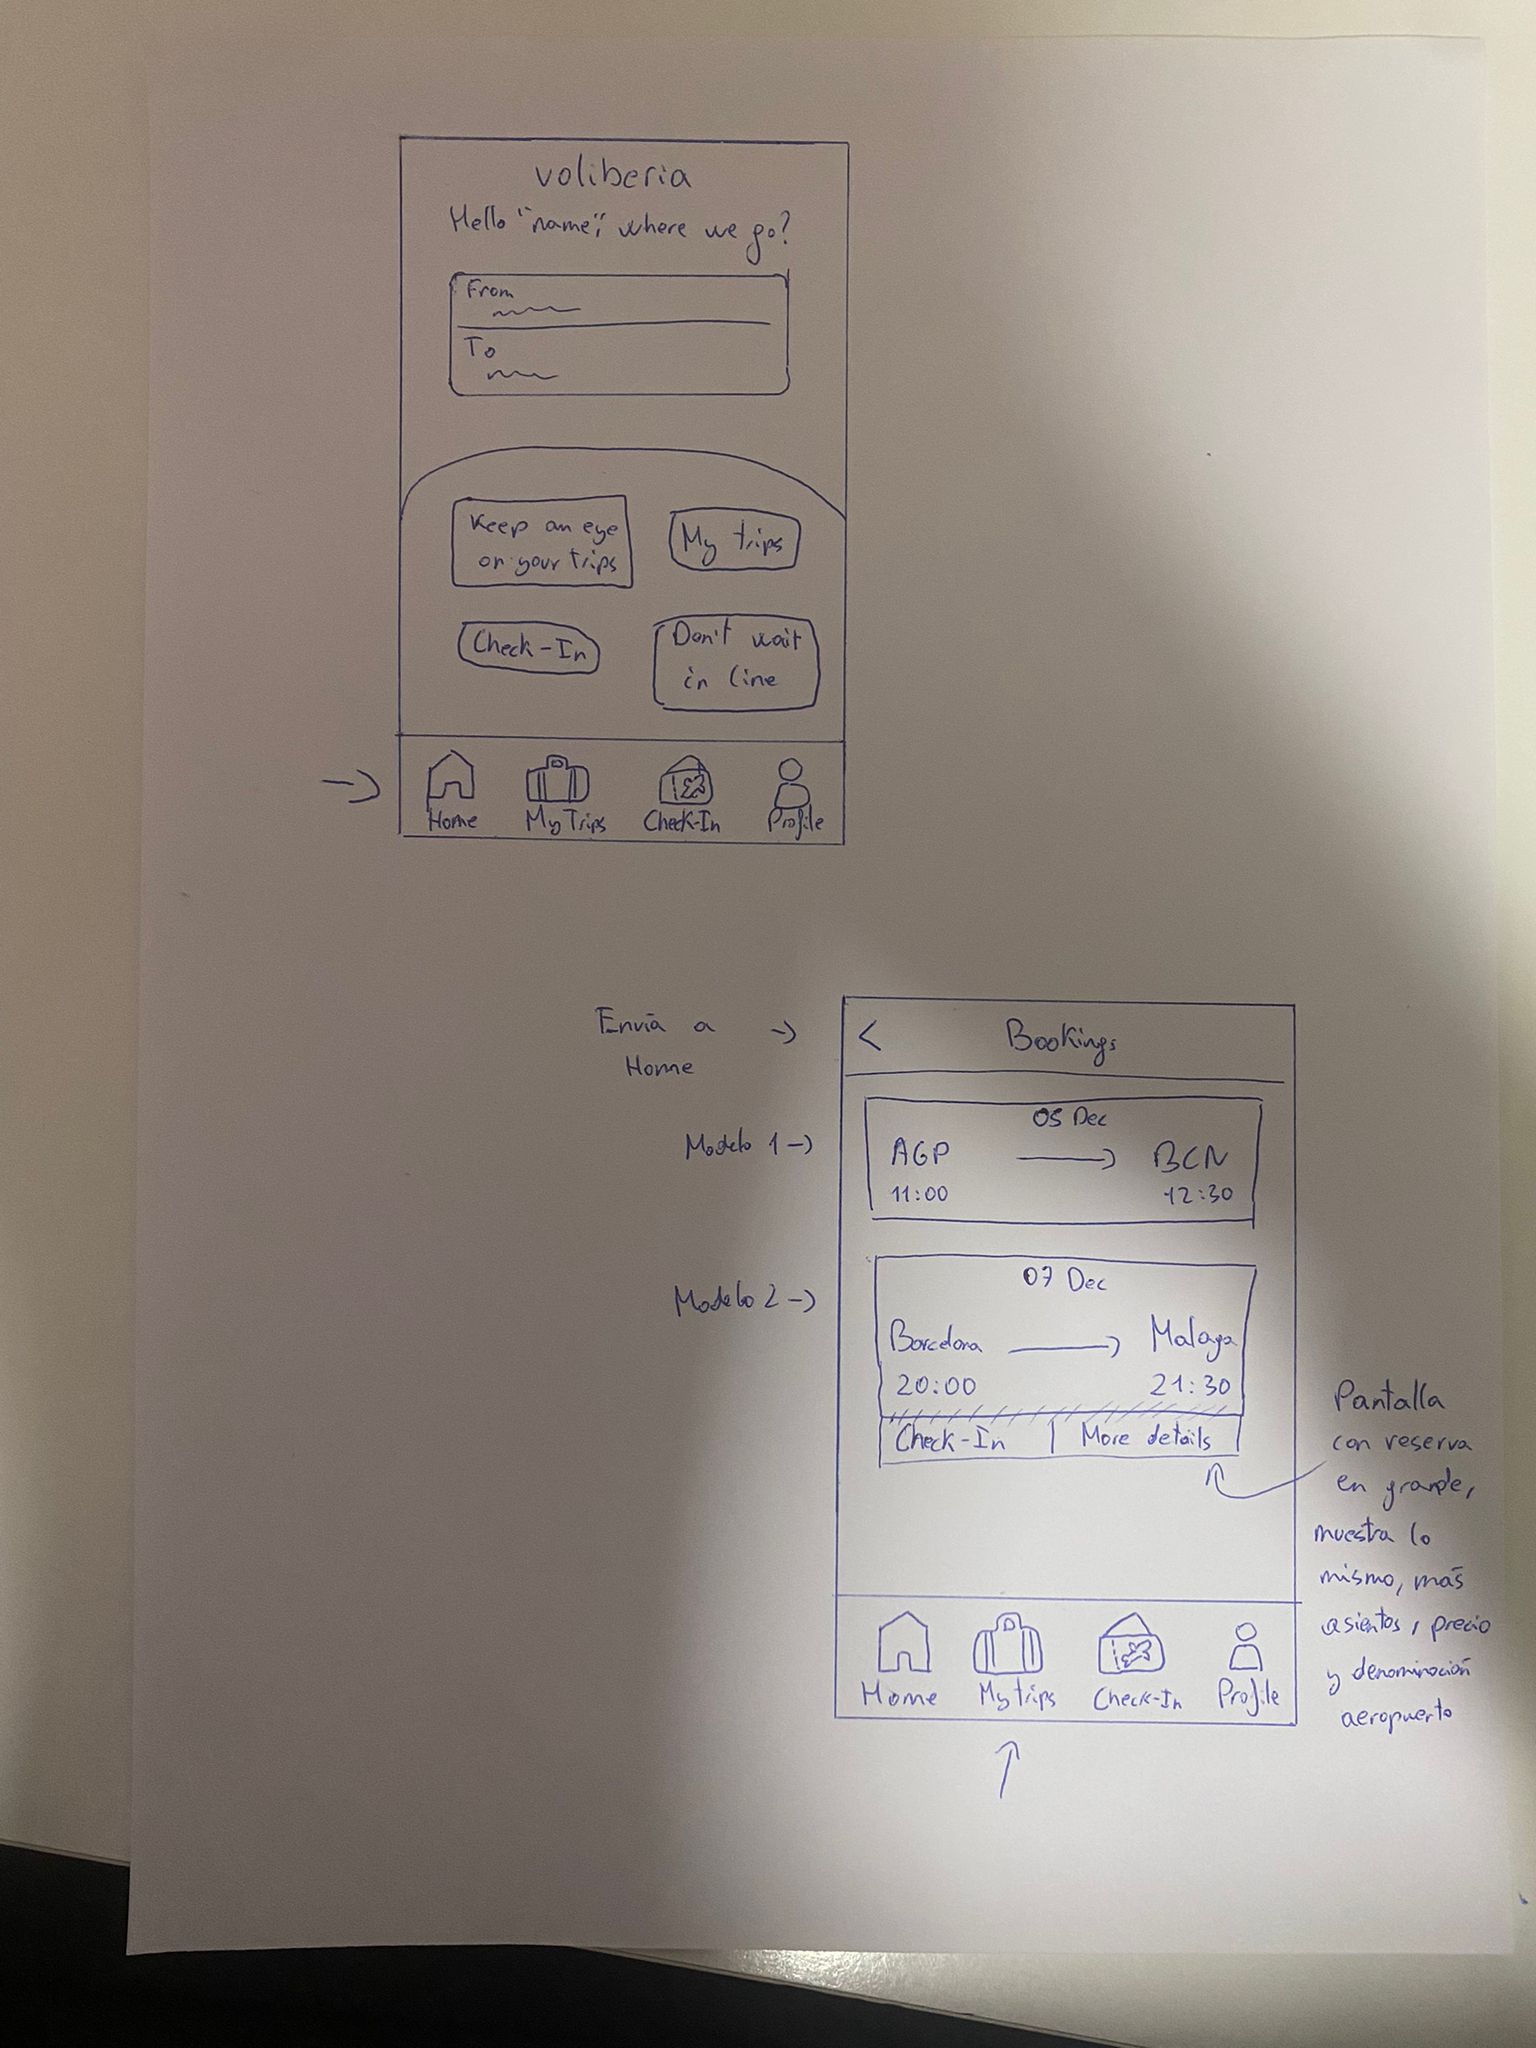 voliberia
Hello "name", where we go?
From
To
Keep an eye
on your trips
My trips
Check-In
Don't wait
in line
Home
My Trips
Check-In
Profile
Envía a
Home
<
Bookings
Modelo 1
05 Dec
AGP
BCN
11:00
12:30
Modelo 2
07 Dec
Barcelona
Malaga
20:00
21:30
Check-In
More details
Pantalla
con reserva
en grande,
muestra lo
mismo, más
asientos, precio
y denominación
aeropuerto
Home
My trips
Check-In
Profile